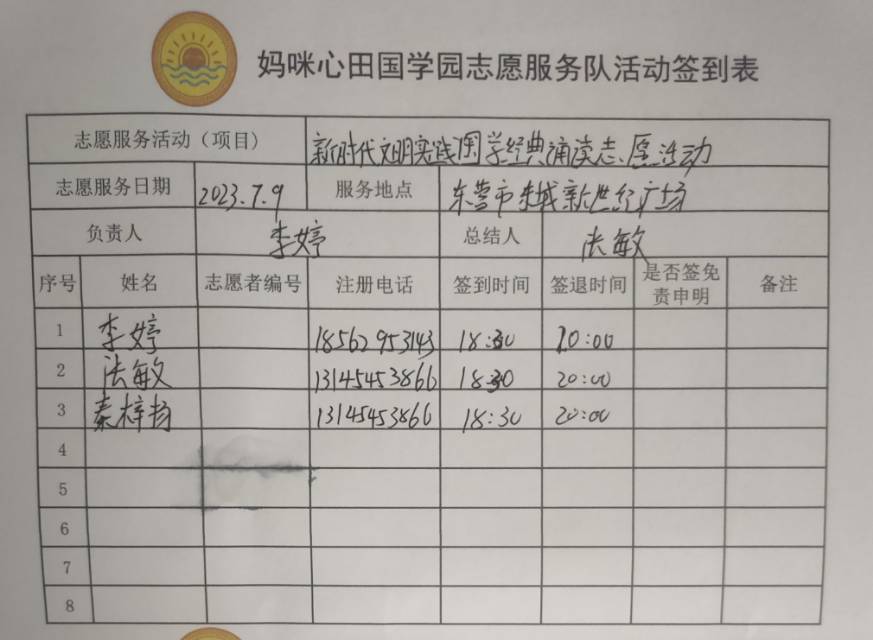 妈咪心田国学园志愿服务队活动签到表
志愿服务活动（项目） 新时代文明实践国学经典诵读志愿活动
志愿服务日期 2023.7.9 服务地点 东营市东城新世纪广场
负责人 李婷 总结人 张敏
序号 姓名 志愿者编号 注册电话 签到时间 签退时间 是否签免责申明 备注
1 李婷 18562953143 18:30 20:00
2 张敏 13145453866 18:30 20:00
3 秦梓扬 13145453866 18:30 20:00
4
5
6
7
8